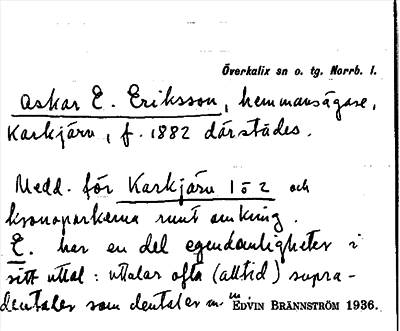 Överkalix sn o. tg. Norrb. l.
Oskar E. Eriksson, hemmansägare,
Karkjärv, f. 1882 därstädes.
Medd. för Karkjärv 1 o 2 och
kronoparkerna runt omkring.
E. har en del egendomligheter i
sitt uttal: uttalar ofta (alltid) supra-
dentaler som dentaler m. m.
EDVIN BRÄNNSTRÖM 1936.